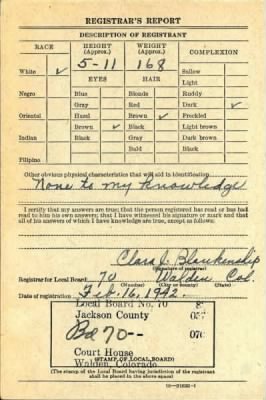 REGISTRAR'S REPORT
DESCRIPTION OF REGISTRANT
RACE HEIGHT (Approx.) WEIGHT (Approx.) COMPLEXION
5-11 168
White ✓ Sallow
EYES HAIR Light
Negro Blue Blonde Ruddy
Gray Red Dark ✓
Oriental Hazel Brown ✓ Freckled
Brown ✓ Black Light brown
Indian Black Gray Dark brown
Bald Black
Filipino
Other obvious physical characteristics that will aid in identification
None to my knowledge
I certify that my answers are true; that the person registered has read or has had
read to him his own answers; that I have witnessed his signature or mark and that
all of his answers of which I have knowledge are true, except as follows:
Clara J. Blankenship
(Signature of registrar)
Registrar for Local Board 70 Walden Col.
(Number) (City or county) (State)
Date of registration Feb. 16, 1942.
Local Board No. 70
Jackson County
Bd 70--
Court House
(STAMP OF LOCAL BOARD)
Walden, Colorado
(The stamp of the Local Board having jurisdiction of the registrant
shall be placed in the above space)